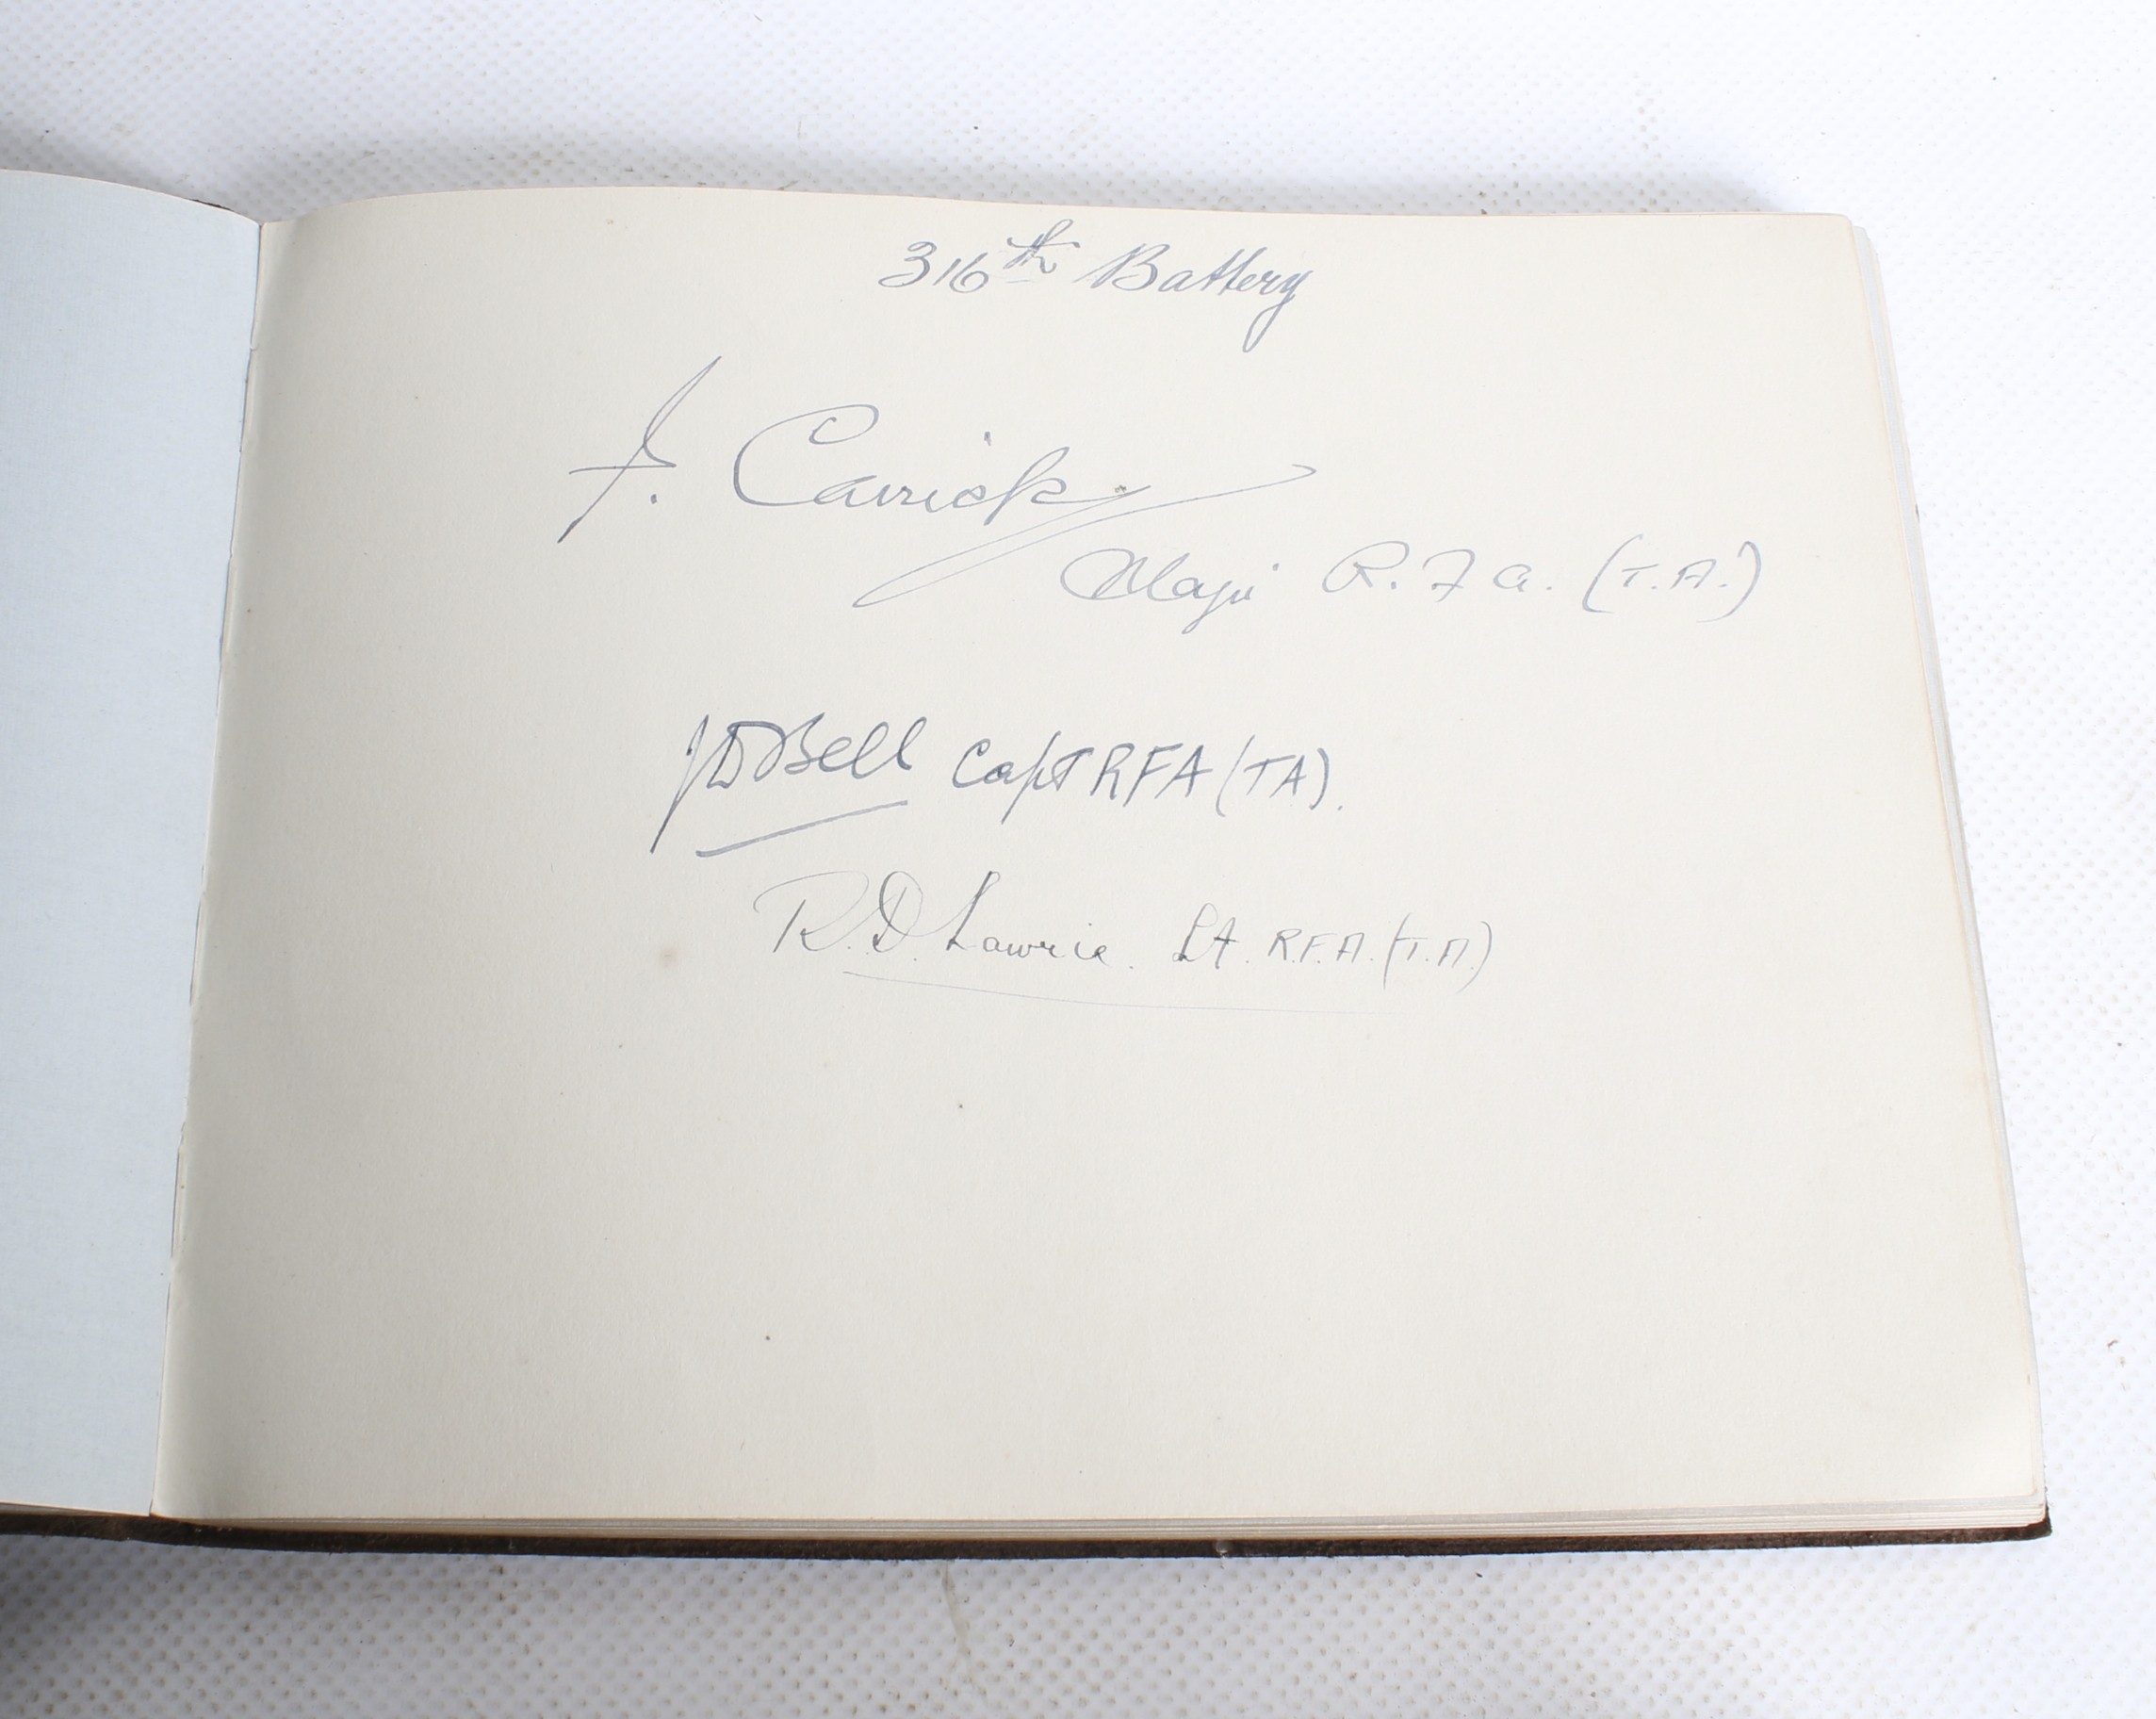 316th Battery
J. Carrick
Major R.F.A. (T.A.)
JD Bell Capt RFA (TA).
R.D. Lawrie. Lt. R.F.A. (T.A.)